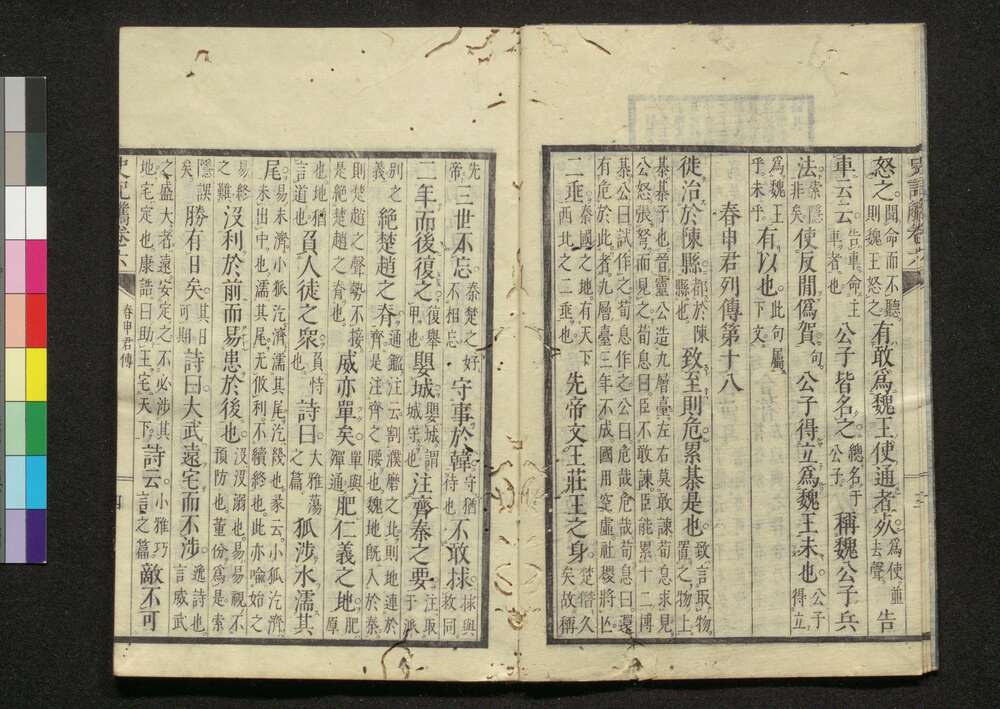 怒之聞命而不聽則魏王怒之有敢爲魏王使通者死爲使並去聲告
車云云告車命主車者也公子皆名之總名于公子稱魏公子兵
法索隱非矣使反間爲賀句公子得立爲魏王未也公子得立
爲魏王乎未乎有以也此句屬下文
春申君列傳第十八
徙治於陳縣都於陳縣也致至則危累棊是也致言取物置之物上
棊棊子也晉靈公造九層臺左右莫敢諫荀息求見
公怒張弩而見之荀息曰臣不敢諫臣能累十二博
棊公曰試作之荀息作之公曰危哉危哉荀息曰還
有危於此者九層臺三年不成國用空虛社稷將亾
二垂秦國之地有天下西北之二垂也先帝文王莊王之身楚僭久矣故稱
先帝三世不忘秦楚之好不相忘守事於韓守猶待也不敢捄捄與救同
二年而後復之復舉甲也嬰城嬰城謂城守也注齊秦之要注取于派
別之義絕楚趙之脊通鑑注云割濮磨之北則地連於齊是注齊之腰也魏地既入於秦
則楚趙之聲勢不接是絕楚趙之脊也威亦單矣單與殫通肥仁義之地肥厚
也地猶言道也負人徒之衆負恃也詩曰大雅蕩之篇狐涉水濡其
尾易未濟小狐汔濟濡其尾汔幾也彖云小狐汔濟未出中也濡其尾无攸利不續終也此亦喻始之
易終之難沒利於前而易患於後也沒沒溺也易易視不預防也董份爲是索
隱誤矣勝有日矣其日可期詩曰大武遠宅而不涉逸詩也言威武
之盛大者遠安定之不必涉其地宅定也康誥曰助王宅天下詩云小雅巧言之篇敵不可
史記觿卷六
春申君傳
四